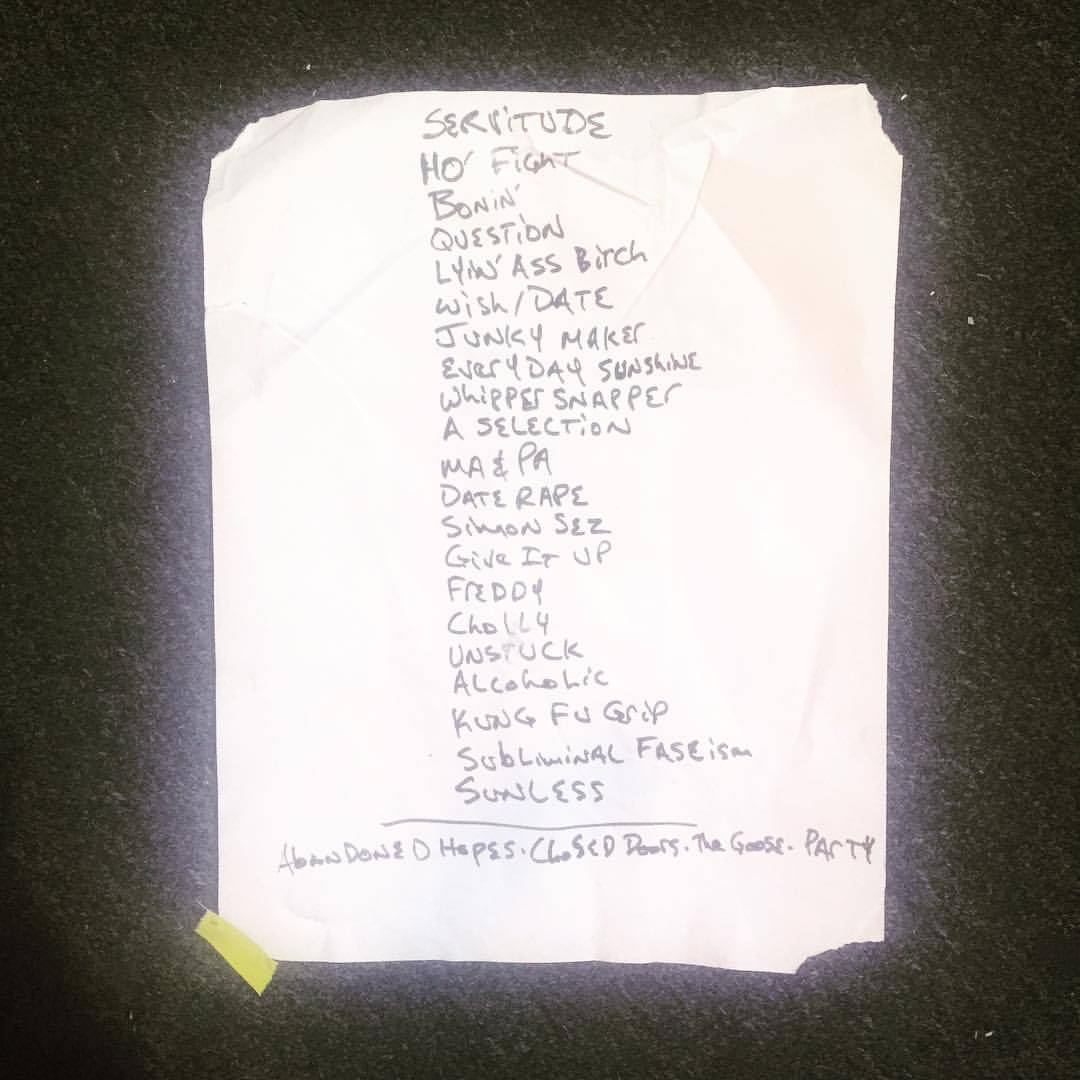 SERVITUDE
HO' FIGHT
BONIN'
QUESTION
LYIN' ASS BITCH
WISH/DATE
JUNKY MAKER
EVERYDAY SUNSHINE
WHIPPER SNAPPER
A SELECTION
MA & PA
DATE RAPE
SIMON SEZ
GIVE IT UP
FREDDY
CHOLLY
UNSTUCK
ALCOHOLIC
KUNG FU GRIP
SUBLIMINAL FASCISM
SUNLESS
ABANDONED HOPES · CLOSED DOORS · THE GOOSE · PARTY